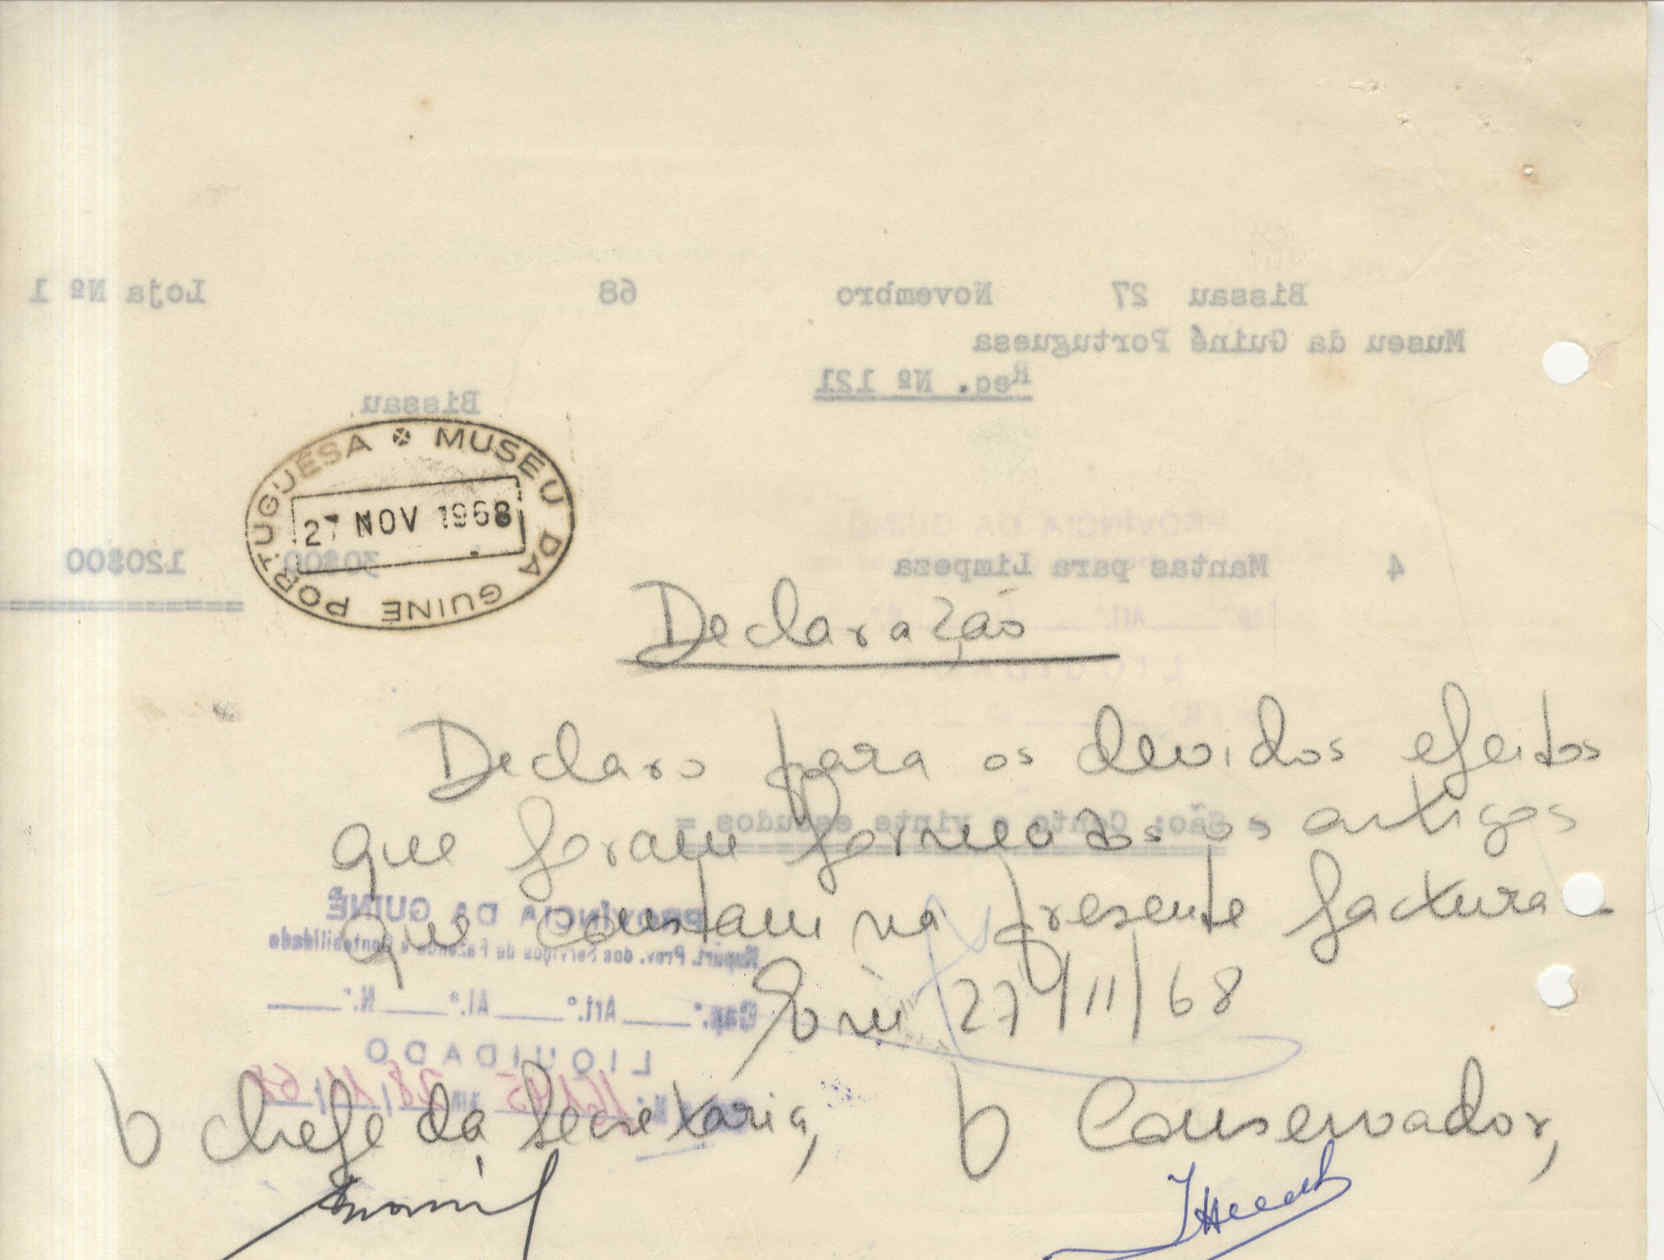 Bissau 27 Novembro 68 Loja Nº 1
Museu da Guiné Portuguesa
Req. Nº 121
Bissau
MUSEU DA GUINÉ PORTUGUÊSA
27 NOV 1968
4 Mantas para Limpeza 30$00 120$00
Declaração
Declaro para os devidos efeitos
São: Cento e vinte escudos =
que foram fornecidos os artigos
que constam na presente factura
PROVÍNCIA DA GUINÉ
Repart. Prov. dos Serviços de Fazenda e Contabilidade
Cap.º Art.º Al.ª N.º
27/11/68
LIQUIDADO
28/11/68
O Chefe da Secretaria, O Conservador,